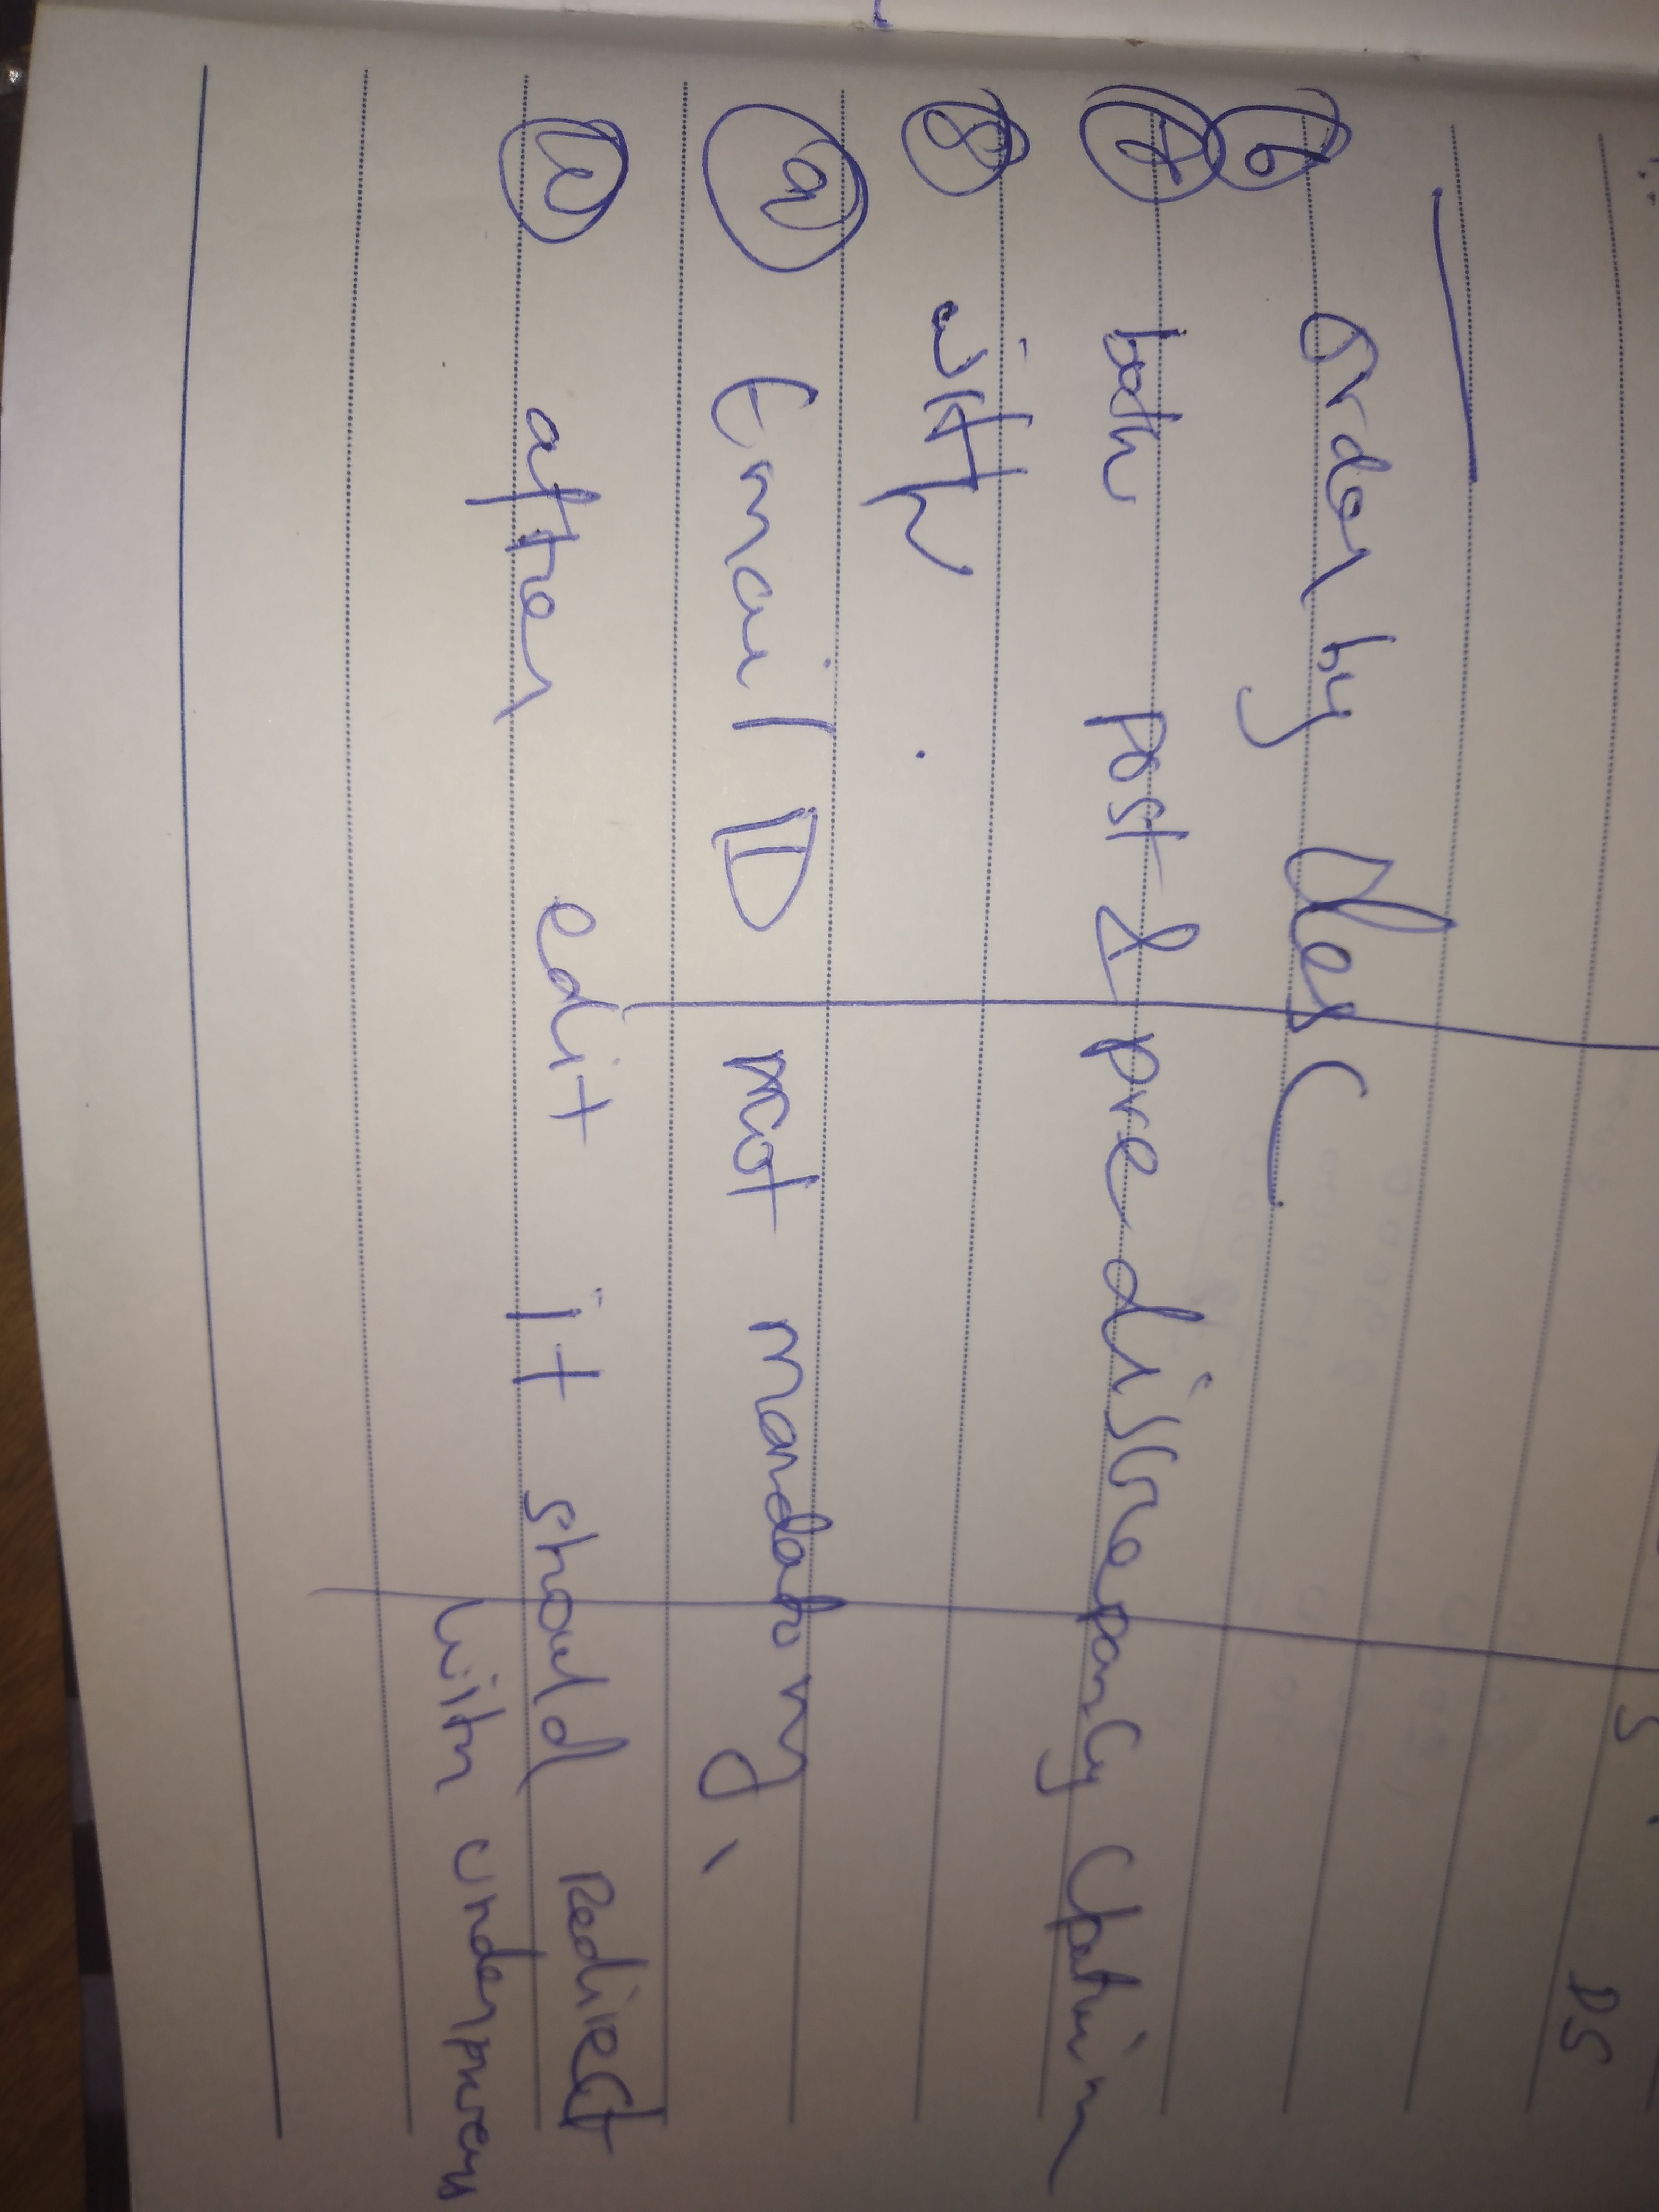 DS
6 order by desc
7 both post & pre discrepancy
8 with
9 Email ID not mandatory,
10 after edit it should Redirect
with